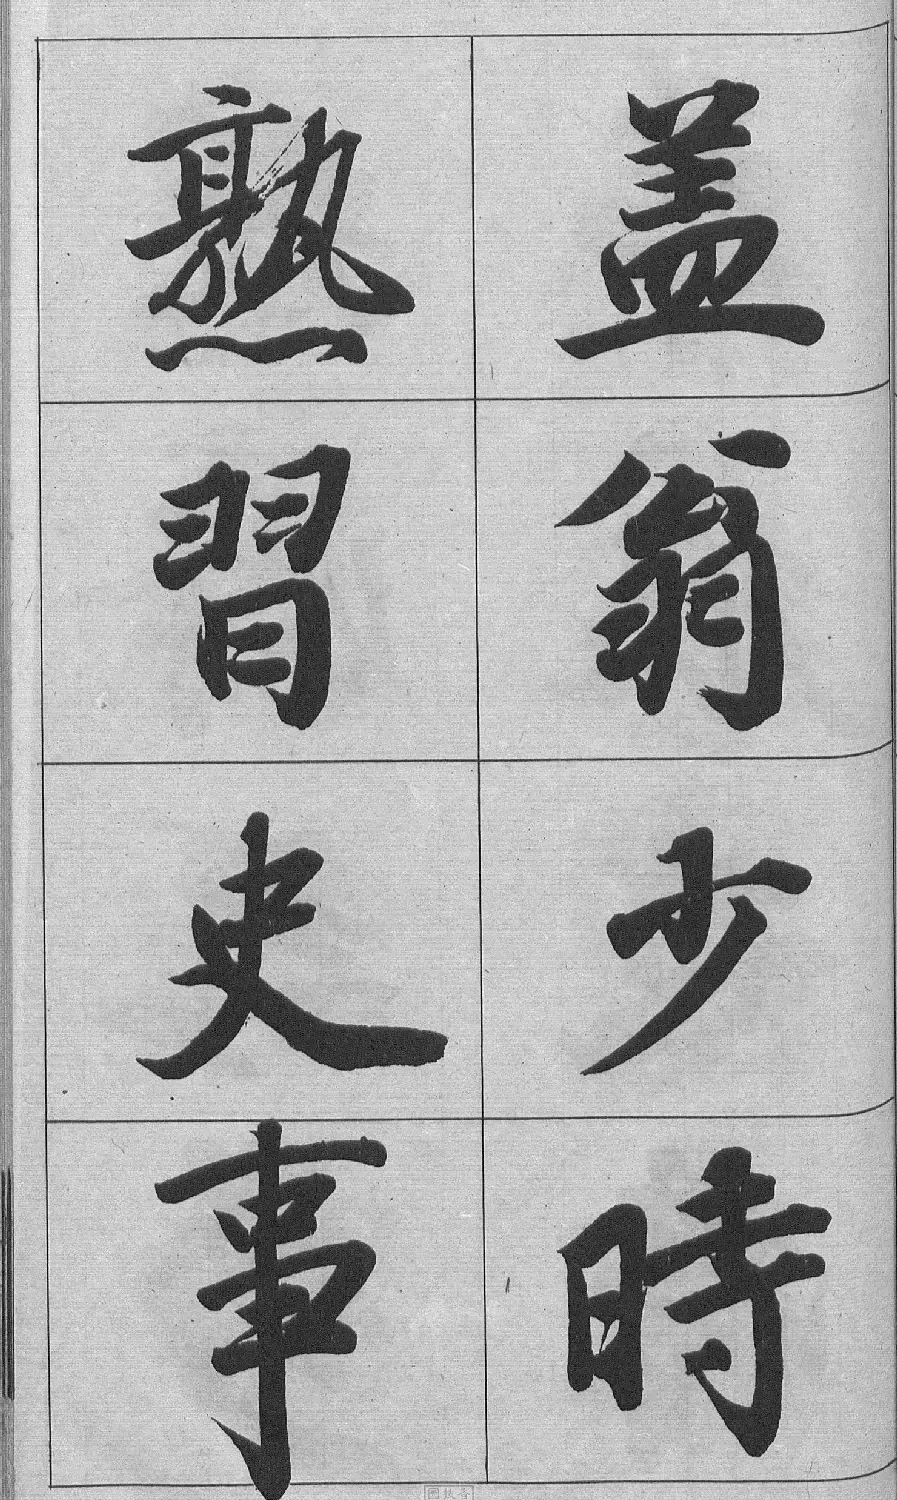 盖翁少時
熟習史事